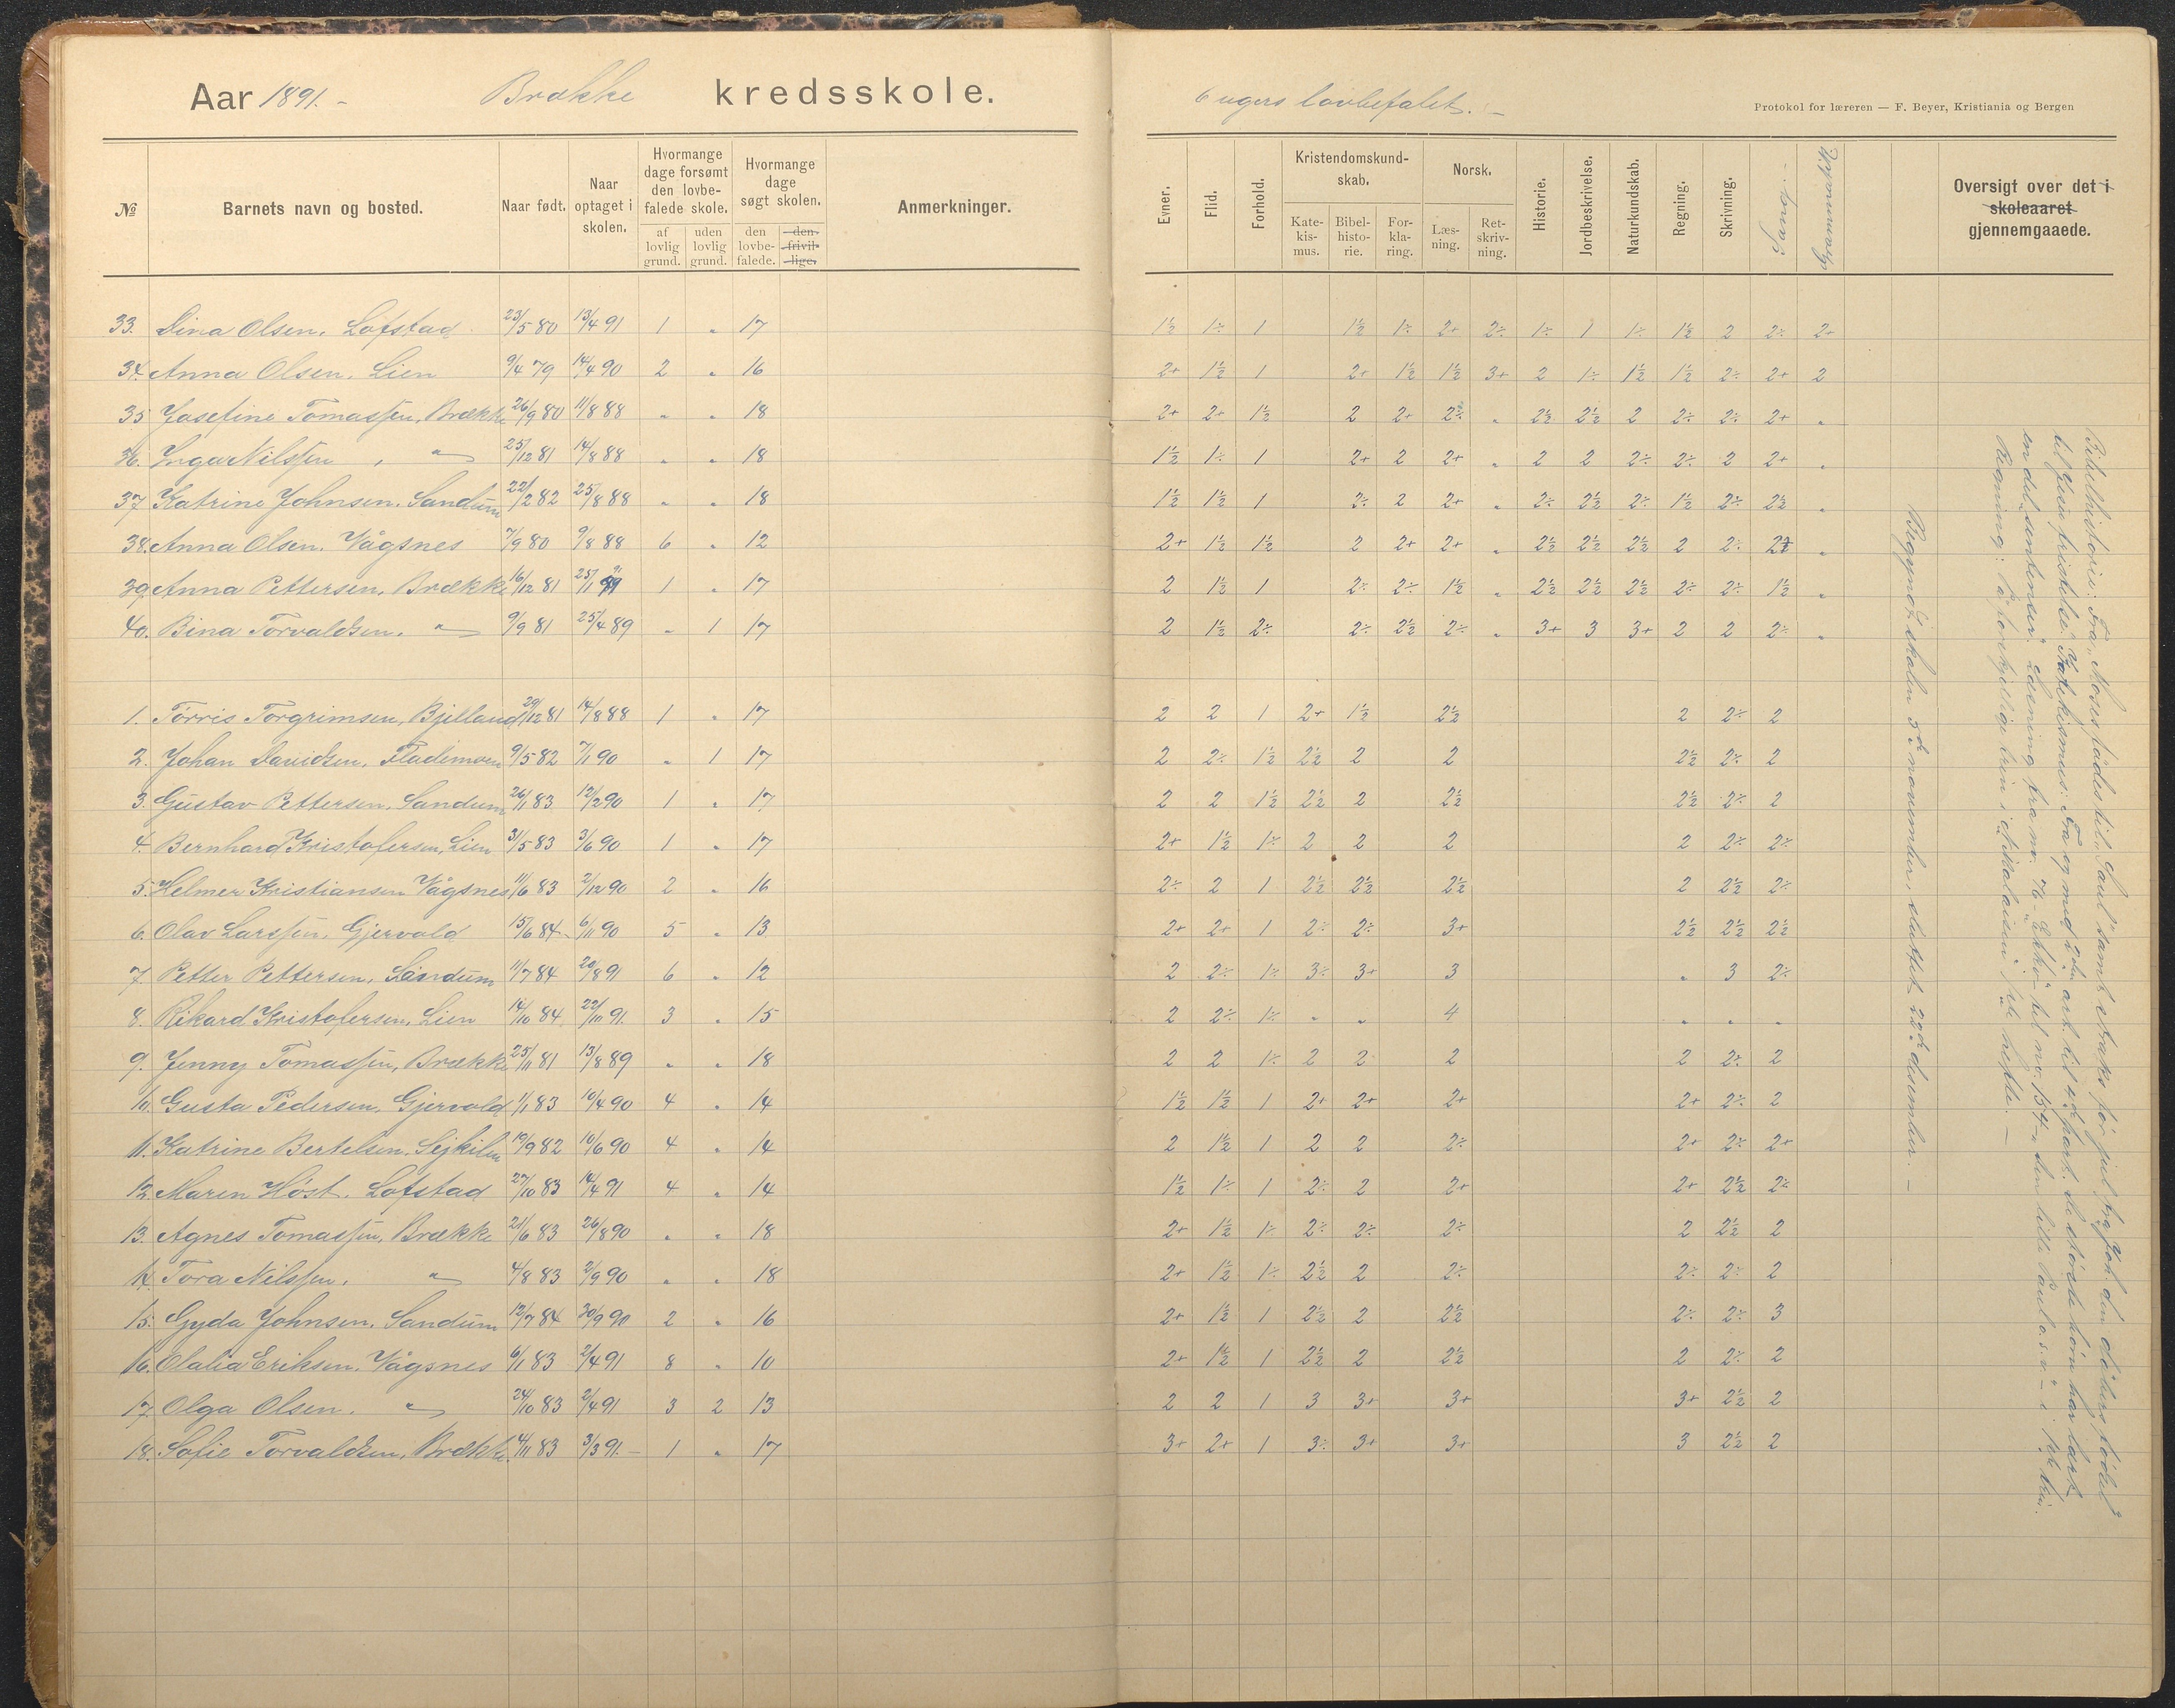 Aar 1891. - Brække kredsskole.
6 ugers lovbefalet. -
Protokol for læreren — F. Beyer, Kristiania og Bergen
№ Barnets navn og bosted. Naar født. Naar optaget i skolen. Hvormange dage forsømt den lovbefalede skole. af lovlig grund. uden lovlig grund. Hvormange dage søgt skolen. den lovbefalede. den frivillige. Anmerkninger.
Evner. Flid. Forhold. Kristendomskundskab. Katekismus. Bibelhistorie. Forklaring. Norsk. Læsning. Retskrivning. Historie. Jordbeskrivelse. Naturkundskab. Regning. Skrivning. Sang. Oversigt over det i skoleaaret gjennemgaaede.
33. Dina Olsen. Løfstad 23/5 80 13/4 91 1 " 17 1½ 1÷ 1 1½ 1÷ 2+ 2÷ 1÷ 1 1÷ 1½ 2 2÷ 2+
34. Anna Olsen. Lien 9/4 79 14/4 90 2 " 16 2+ 1½ 1 2+ 1½ 1½ 3+ 2 1÷ 1½ 1½ 2÷ 2+ 2
35 Josefine Tomassen, Brække 26/9 80 11/8 88 " " 18 2+ 2+ 1½ 2 2+ 2÷ " 2½ 2½ 2 2÷ 2÷ 2+ "
36. Inga Nilssen , " 25/12 81 14/8 88 " " 18 1½ 1÷ 1 2+ 2 2+ " 2 2 2÷ 2÷ 2 2+ "
37 Katrine Johnsen. Sandum 22/2 82 25/8 88 " " 18 1½ 1½ 1 2÷ 2 2+ " 2÷ 2½ 2÷ 1½ 2÷ 2½ "
38. Anna Olsen. Vågsnes 7/9 80 9/8 88 6 " 12 2+ 1½ 1½ 2 2+ 2+ " 2½ 2½ 2½ 2 2÷ "
39. Anna Pettersen, Brække 16/12 81 25/1 91 1 " 17 2 1½ 1 2÷ 2÷ 1½ " 2½ 2½ 2½ 2÷ 2÷ 1½ "
40. Bina Torvaldsen. " 9/9 81 25/4 89 " 1 17 2 1½ 2÷ 2÷ 2½ 2÷ " 3+ 3 3+ 2 2 2÷ "
1. Tørris Torgrimsen, Bjelland 29/12 81 14/8 88 1 " 17 2 2 1 2+ 1½ 2½ 2 2÷ 2
2. Johan Davidsen, Flademoen 9/5 82 7/1 90 " 1 17 2 2÷ 1½ 2½ 2 2 2½ 2÷ 2
3. Gustav Pettersen, Sandum 26/1 83 12/2 90 1 " 17 2 2 1½ 2½ 2 2½ 2½ 2÷ 2
4. Bernhard Kristofersen, Lien 31/5 83 3/6 90 1 " 17 2+ 1½ 1÷ 2 2 2 2 2÷ 2÷
5. Helmer Kristiansen Vågsnes 11/6 83 2/12 90 2 " 16 2÷ 2 1 2½ 2½ 2½ 2 2½ 2÷
6. Olav Larssen, Gjervold 15/6 84 6/11 90 5 " 13 2+ 2+ 1 2÷ 2÷ 3+ 2½ 2½ 2½
7. Petter Pettersen, Sandum 11/7 84 20/8 91 6 " 12 2 2÷ 1÷ 3÷ 3+ 3 " 3 2÷
8. Rikard Kristofersen, Lien 14/10 84 22/11 91. 3 " 15 2 2÷ 1÷ " " 4 " " "
9. Jenny Tomassen, Brække 25/11 81 13/8 89 " " 18 2 2 1÷ 2 2÷ 2 2 2÷ 2
10. Gusta Pedersen, Gjervold 1/1 83 10/4 90 4 " 14 1½ 1½ 1 2+ 2+ 2+ 2+ 2÷ 2
11. Katrine Bertelsen. Lejkilen 19/9 82 10/6 90 4 " 14 2 1½ 1 2 2 2÷ 2+ 2÷ 2+
12. Maren Høst. Løfstad 27/10 83 14/4 91 4 " 14 1½ 1÷ 1 2÷ 2 2+ 2+ 2½ 2÷
13. Agnes Tomassen, Brække 21/6 83 26/8 90 " " 18 2+ 1½ 1÷ 2÷ 2÷ 2÷ 2 2½ 2
14. Tora Nilssen. " 4/8 83 2/9 90 " " 18 2+ 1½ 1÷ 2½ 2 2÷ 2÷ 2÷ 2
15. Gyda Johnsen. Sandum 12/7 84 30/9 90 2 " 16 2+ 1½ 1 2½ 2 2½ 2÷ 2÷ 3
16. Olalia Eriksen. Vågsnes 6/1 83 2/4 91 8 " 10 2+ 1½ 1 2½ 2 2½ 2 2÷ 2
17. Olga Olsen. " 24/10 83 2/4 91 3 2 13 2 2 1 3 3+ 3+ 3+ 2½ 2
18. Sofie Torvaldsen, Brække 4/11 83 3/3 91. - 1 " 17 3+ 2+ 1 3÷ 3+ 3+ 3 2½ 2
Bibelhistorie: Fra „Moses fødes" til „Saul" samt straks før jul fra Joh. den døbers fødsel
til Jesu fristelse. Katekismus: Fra og med 2den art. til 4de part. De største børn har lært
en del „sentenser". Læsning fra nr. 76 „Ekko" til nr. 154 „Den lille Paul o.s.v." i 1ste trin.
Regning: På forskjellige trin i Nikolaisens 1ste hefte. —
Begyndt skolen 3die november, sluttet 22de desember. —